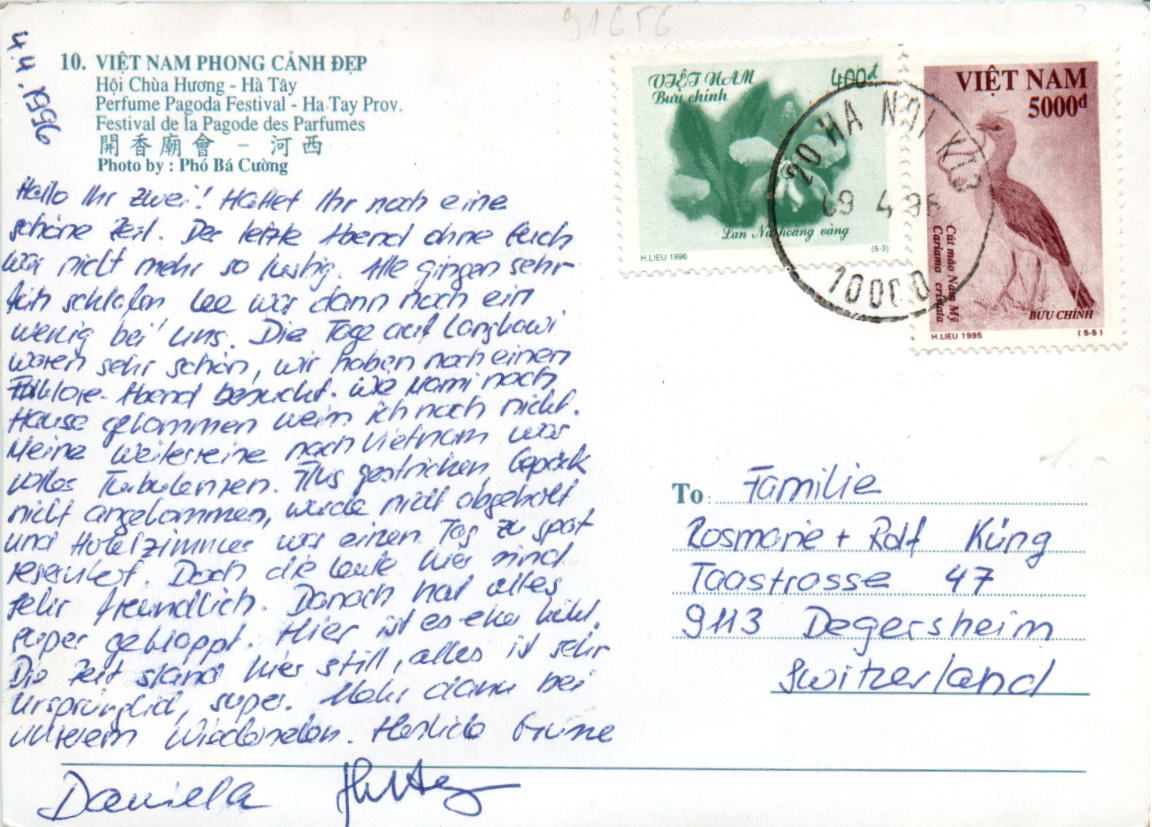 91656
4.4.1996
10. VIỆT NAM PHONG CẢNH ĐẸP
Hội Chùa Hương - Hà Tây
Perfume Pagoda Festival - Ha Tay Prov.
Festival de la Pagode des Parfumes
開香廟會 - 河西
Photo by : Phó Bá Cường
Hallo Ihr zwei! Hattet Ihr noch eine
schöne Zeit. Der letzte Abend ohne Euch
war nicht mehr so lustig. Alle gingen sehr
früh schlafen. Lee war dann noch ein
wenig bei uns. Die Tage auf Langkawi
waren sehr schön, wir haben noch einen
Folklore-Abend besucht. Wie Mami nach
Hause gekommen weiss ich noch nicht.
Meine Weiterreise nach Vietnam war
voller Turbulenzen. Flug gestrichen Gepäck
nicht angekommen, wurde nicht abgeholt
und Hotelzimmer war einen Tag zu spät
reserviert. Doch die Leute hier sind
sehr freundlich. Danach hat alles
super geklappt. Hier ist es eher kühl.
Die Zeit stand hier still, alles ist sehr
ursprünglich, super. Mehr dann bei
unserem Wiedersehen. Herzliche Grüsse
Daniella
VIỆT NAM
Bưu chính
400đ
Lan Nữ hoàng vàng
H.LIEU 1996
(5-3)
20 HA NOI KT3
09 4 96
10000
VIỆT NAM
5000đ
Cút mào Nam Mỹ
Cariama cristata
BƯU CHÍNH
H.LIEU 1995
(5-5)
To : Familie
Rosmarie + Rolf Küng
Taastrasse 47
9113 Degersheim
Switzerland